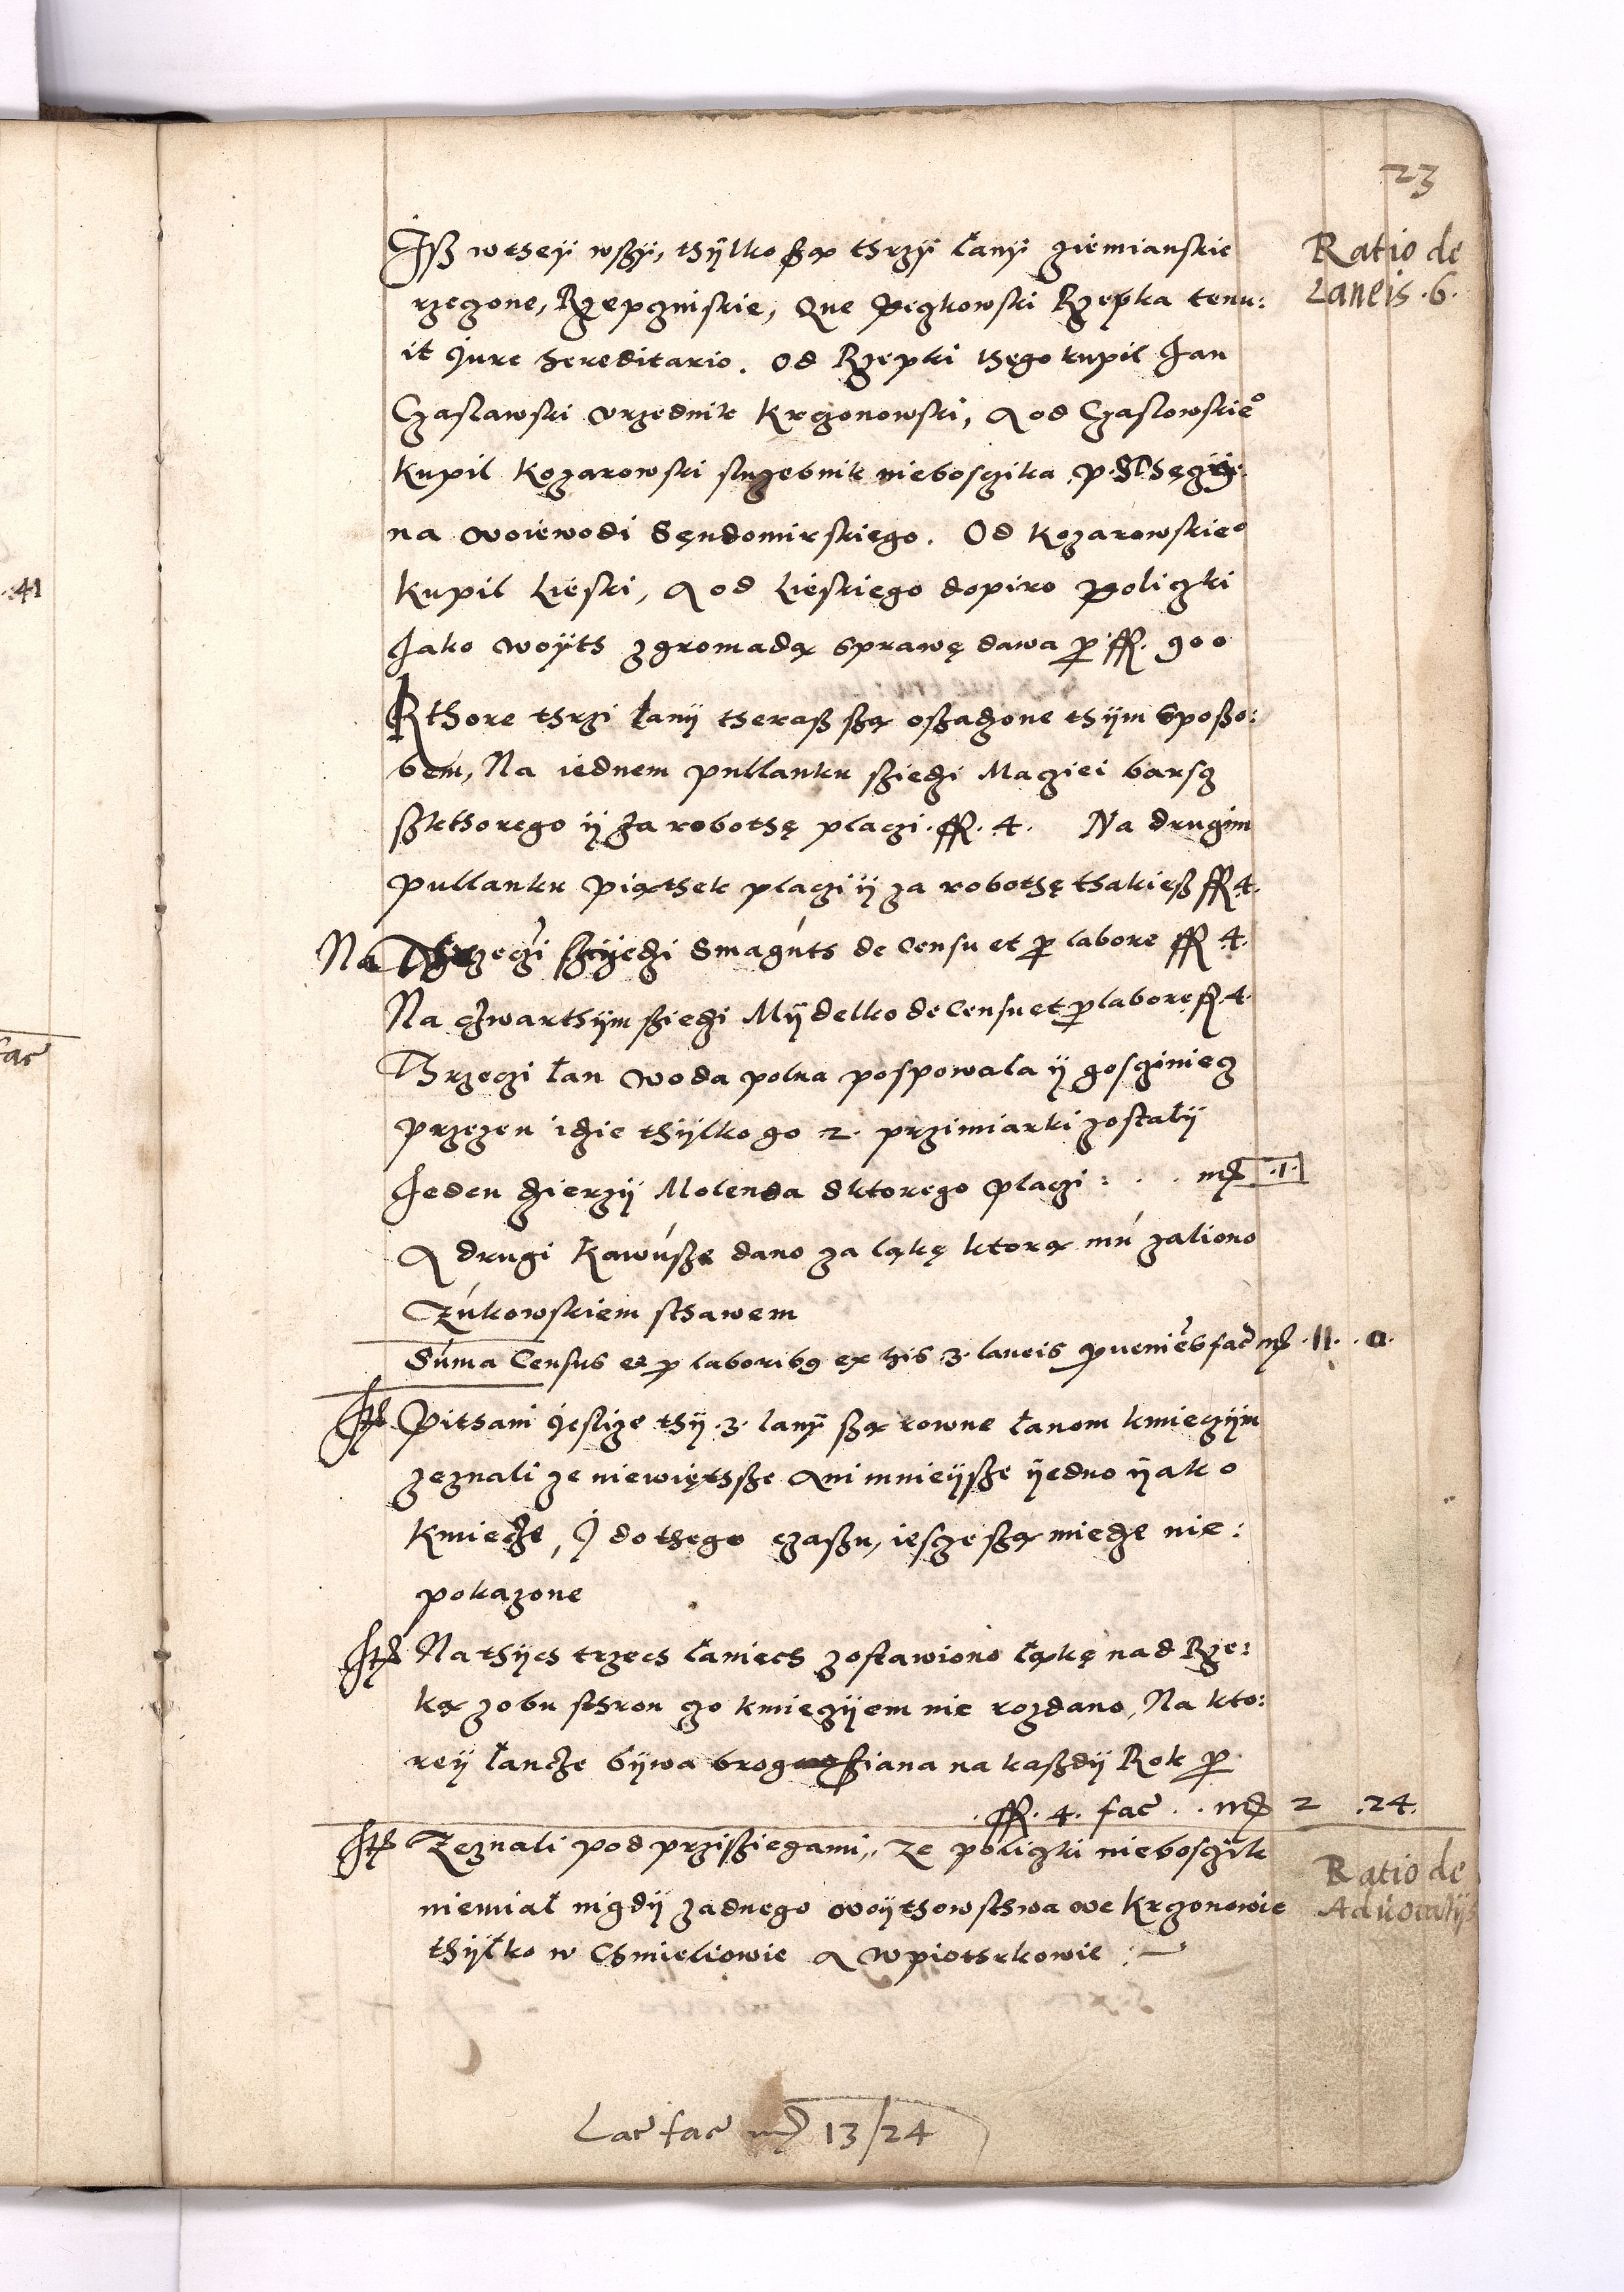 23
Ratio de
Laneis .6.
Iſz wtheÿ wſzÿ, thÿlko ſzą thrzÿ łanÿ ziemianskie
rzeczone, Rzepczinskie, Que Peczkowski Rzepka tenu:
it jure hereditario. Od Rzepki thego kupil Jan
Czaslawski vrzednik Krczonowski, A od Czaslowskieº
kupil Kozarowski sluzebnik niebosczika p. Thęczÿ:
na woiewodi Sęndomirskiego. Od Kozarowskieº
kupil Lieski, A od Lieskiego dopiro Policzki
Jako woÿth zgromadą sprawę dawa p ff. 900
Kthore thrzi łanÿ theraſz ſzą oſzadzone thÿm spoſzo:
bem, Na iednem pullanku ſziedzi Maciei barſcz
ſzkthorego ÿ za robothę placzi. ff. 4. Na drugim
pullanku Piąthek placzi ÿ za robothę thakieſz ff 4.
Na Thrzeczi ſziedzi Smaguth de Censu et p labore ff 4.
Na czwarthÿm ſziedzi Mÿdelko de Censu et p labore ff. 4.
Thrzeczi łan woda polna pospowala ÿ goscziniecz
przezen idzie thÿlko go 2. przimiarki zostałÿ
Jeden dzierzÿ Molenda sktorego placzi : . . mß .1.
A drugi Kawuſze dano za ląkę ktorą mu zaliono
Zukowskiem sthawem
Suma Census et p laboribꝫ ex his 3. laneis proueniēs fac mß .11. .0.
Itß Pithani jeslize thÿ .3. lanÿ ſzą rowne łanom kmieczÿm
zeznali ze niewięthſze Ani mnieÿſze ÿedno ÿako
kmiecze, J do thego czaſzu, iescze ſzą miedze nie:
pokazone
Itß Na thÿch trzech łaniech zostawiono łąkę nad Rze:
ką zobu sthron czo kmieczÿem nie rozdano, Na kto:
reÿ łancze bÿwa brog ſiana na kaſzdÿ Rok p
. ff. 4. fac . . mß 2 .24.
Itß Zeznali pod prziſziegami, Ze policzki nieboscżik
niemiał nigdÿ zadnego woÿthowsthwa we Krczonowie
thÿłko w Chmieliowie A wpiothrkowie :—
Ratio de
Aduocatijs
Lat fac mß 13/24
.41
fac